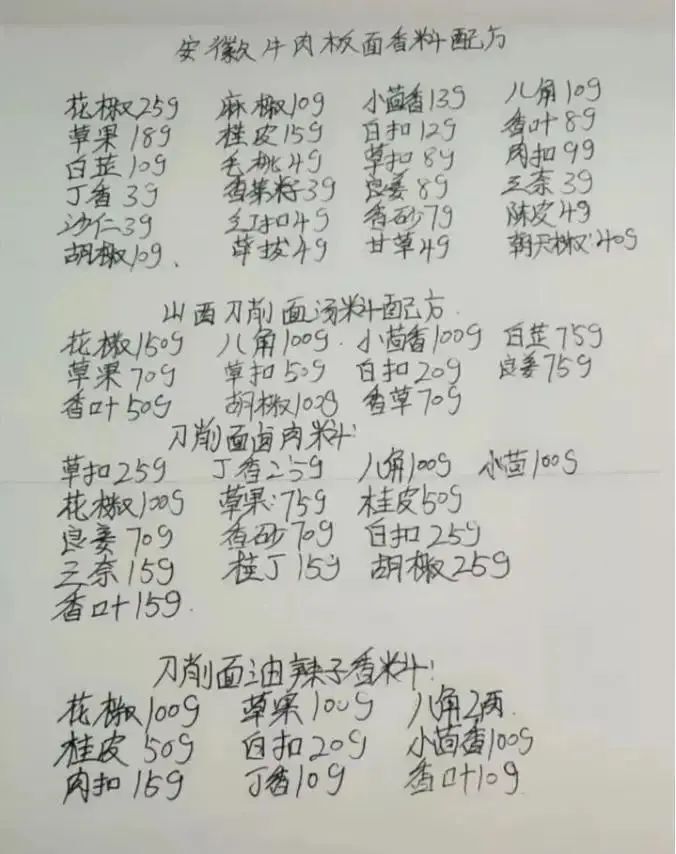 安徽牛肉板面香料配方
花椒25g 麻椒10g 小茴香13g 八角10g
草果18g 桂皮15g 白扣12g 香叶8g
白芷10g 毛桃4g 草扣8g 肉扣9g
丁香3g 香菜籽3g 良姜8g 三奈3g
沙仁3g 红扣4g 香砂7g 陈皮4g
胡椒10g、 荜拔4g 甘草4g 朝天椒40g
山西刀削面汤料配方
花椒150g 八角100g. 小茴香100g 白芷75g
草果70g 草扣50g 白扣20g 良姜75g
香叶50g 胡椒100g 香草70g
刀削面卤肉料:
草扣25g 丁香25g 八角100g 小茴100g
花椒100g 草果:75g 桂皮50g
良姜70g 香砂70g 白扣25g
三奈15g 桂丁15g 胡椒25g
香叶15g.
刀削面油辣子香料:
花椒100g 草果100g 八角2两.
桂皮50g 白扣20g 小茴香100g
肉扣15g 丁香10g 香叶10g